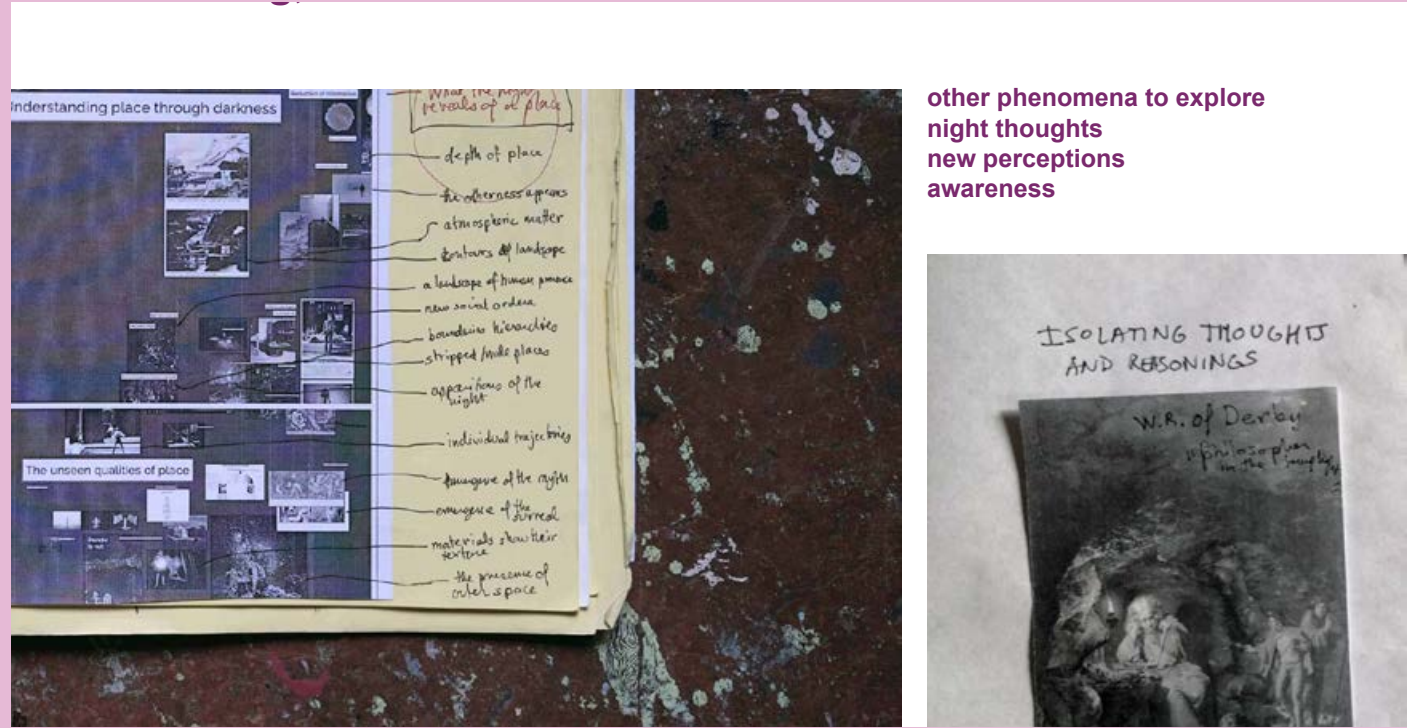 Understanding place through darkness
What the night
reveals of a place
depth of place
the otherness appears
atmospheric matter
contours of landscape
a landscape of human presence
new social orders
boundaries hierarchies
stripped/nude places
apparitions of the
night
individual trajectories
The unseen qualities of place
emergence of the myth
emergence of the
surreal
materials show their
texture
the presence of
outer space
other phenomena to explore
night thoughts
new perceptions
awareness
ISOLATING THOUGHTS
AND REASONINGS
W.R. of Derby
Philosopher
in the